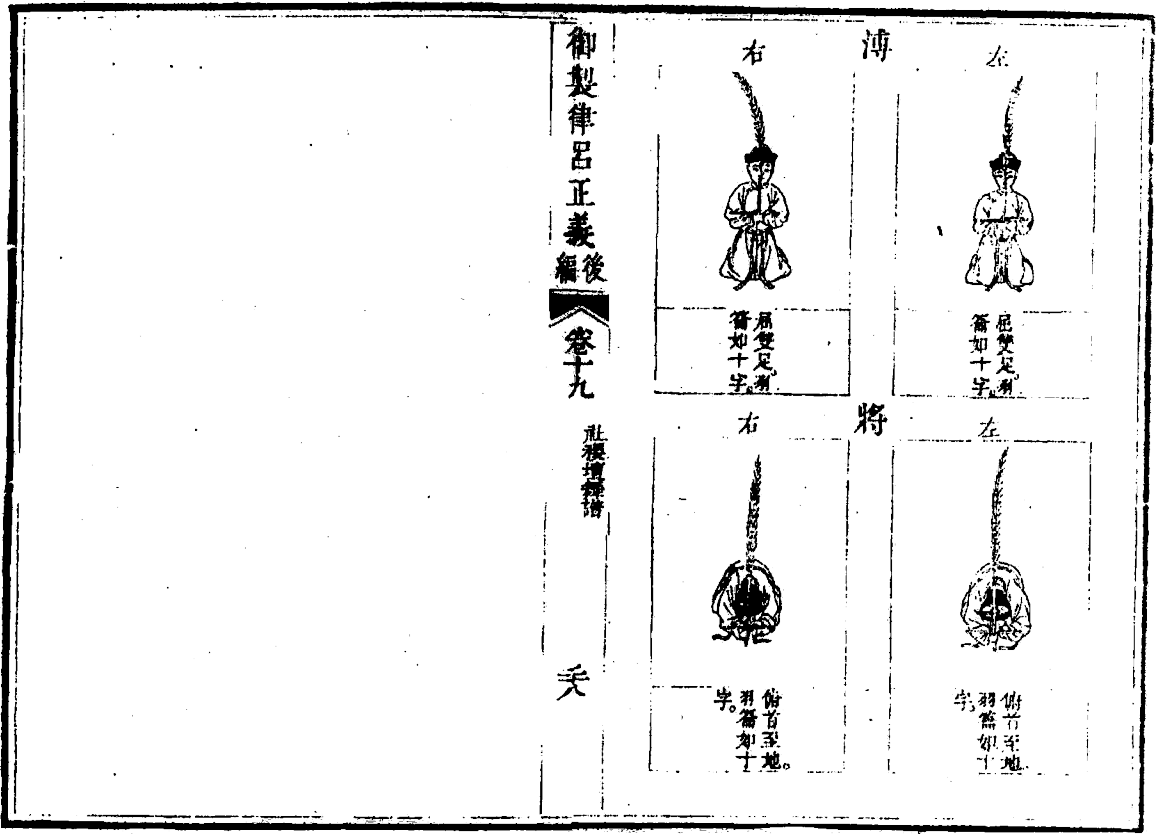 溥
左
屈雙足。羽
籥如十字。
右
屈雙足。羽
籥如十字。
將
左
俯首至地
羽籥如十
字。
右
俯首至地。
羽籥如十
字。
御製律呂正義後編
卷十九
社稷壇舞譜